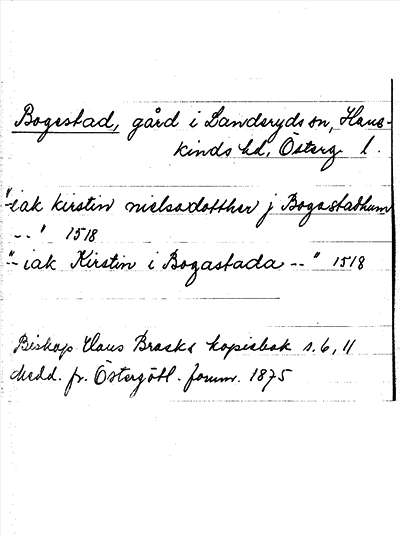 Bogestad, gård i Landeryds sn, Hane-
kinds hd, Österg. l.
"-iak kirstin nielsadotther j Bogastadhum
--" 1518
"- iak Kirstin i Bogastada --" 1518
Biskop Hans Brasks kopiebok s. 6, 11
Medd. fr. Östergötl. fornm. 1875